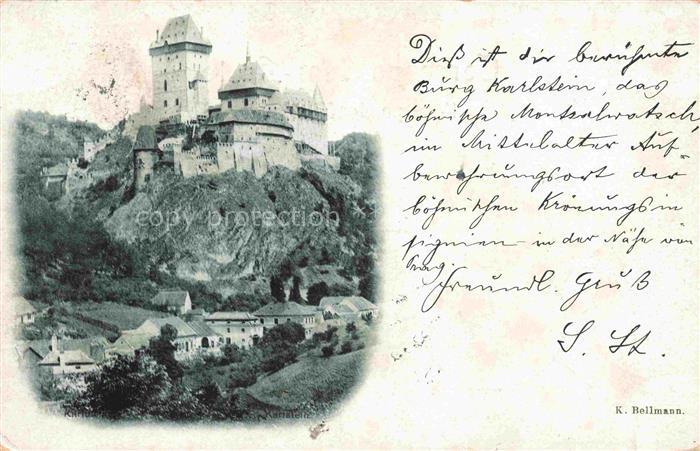 Dieß ist die berühmte
Burg Karlstein, das
böhmische Montsalvatsch
im Mittelalter Auf-
bewahrungsort der
böhmischen Krönungsin
signien - in der Nähe von
Prag.
Freundl. Gruß
S. St.
K. Bellmann.
copy protection
Karlstein.